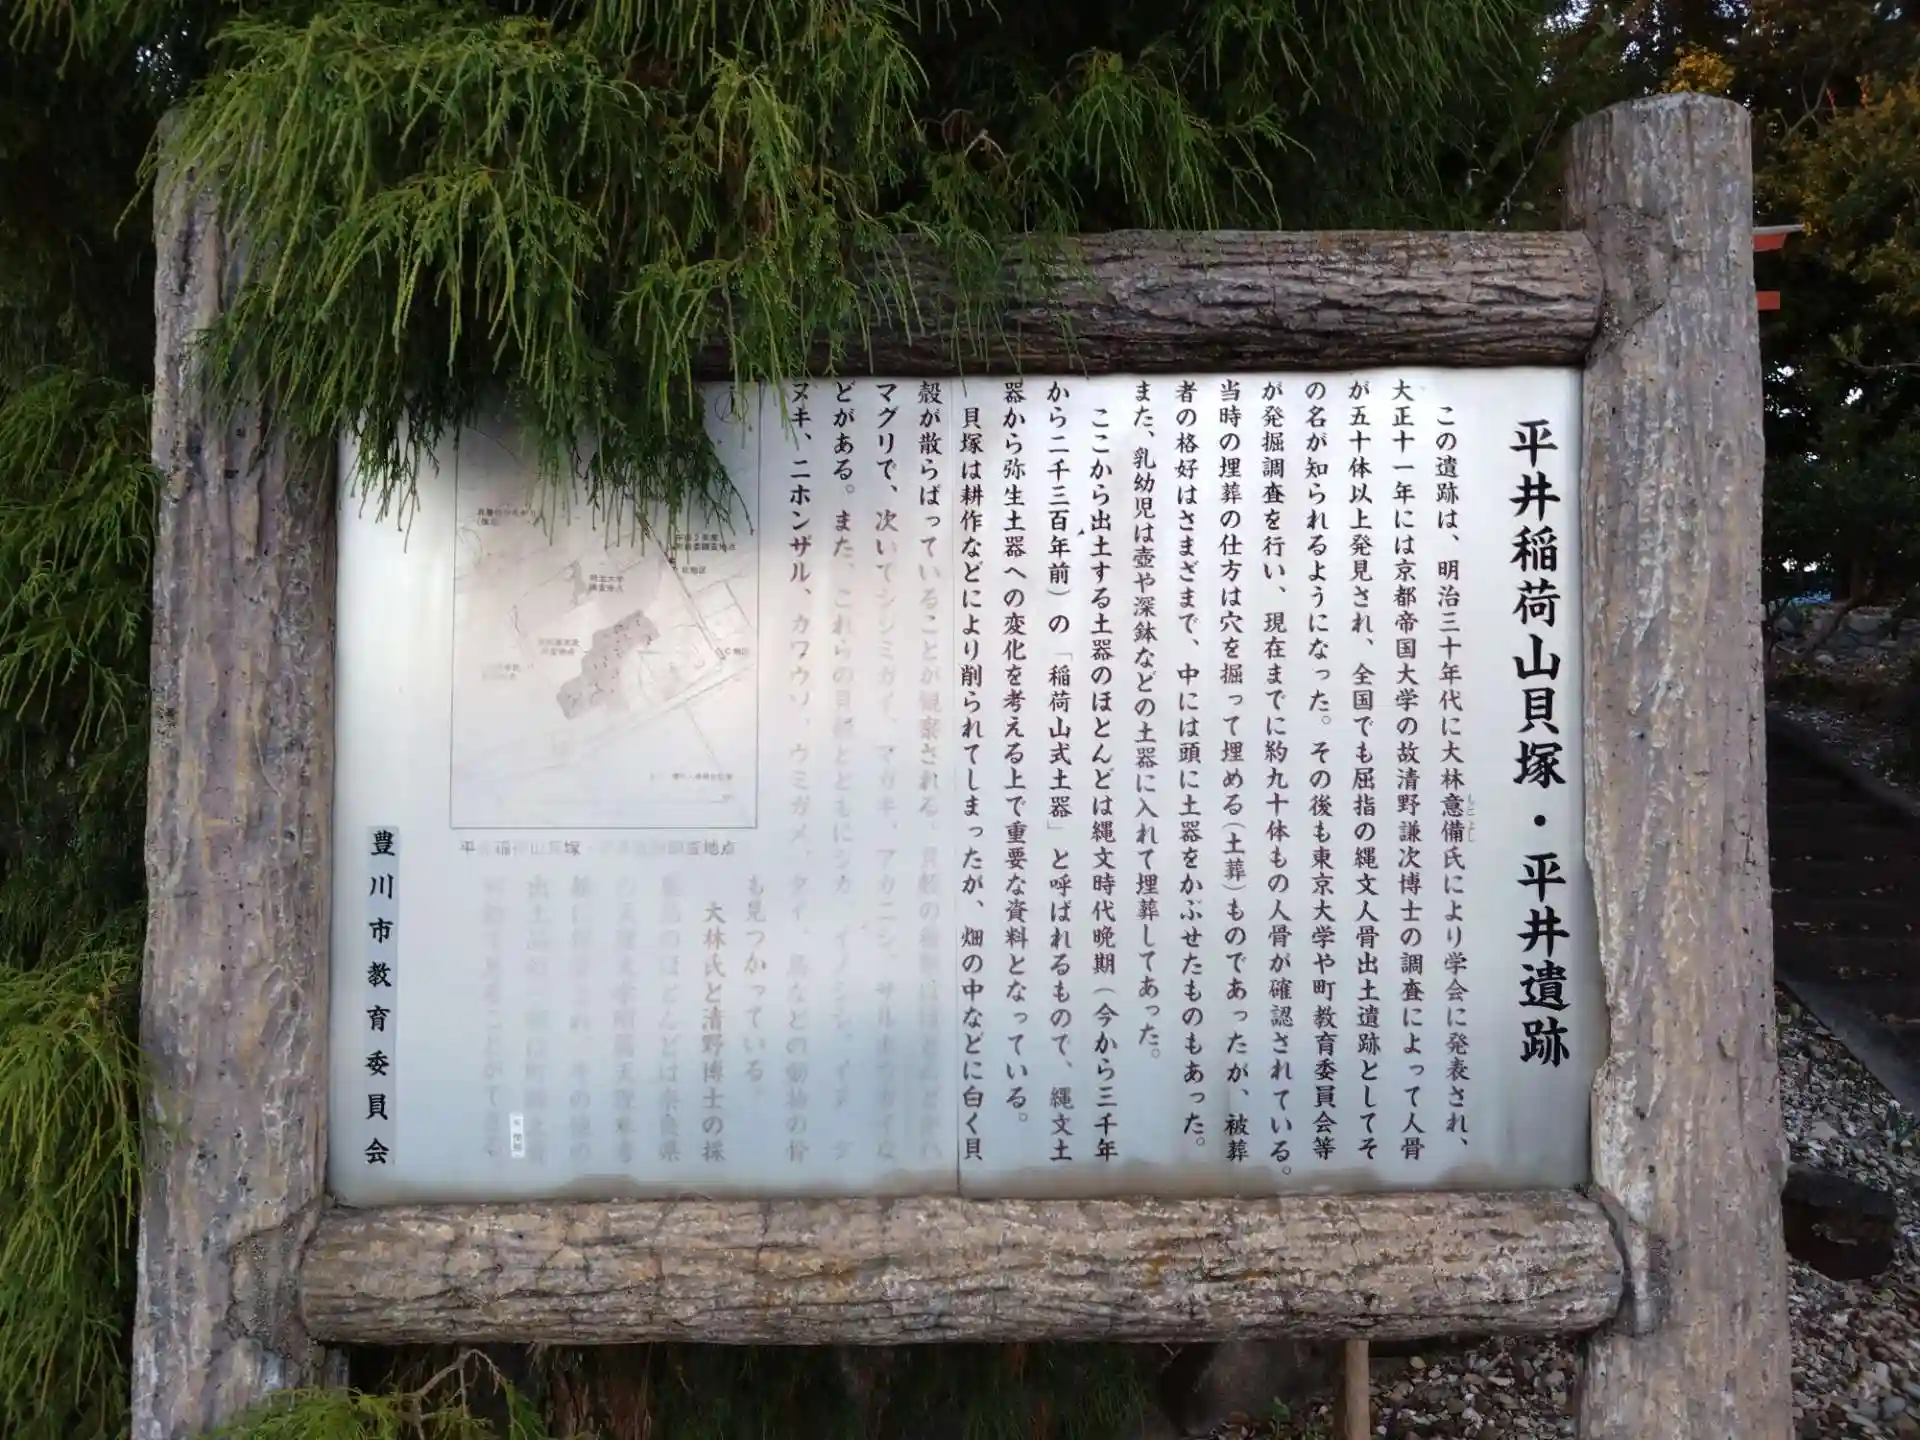 平井稲荷山貝塚・平井遺跡
この遺跡は、明治三十年代に大林意備氏により学会に発表され、
大正十一年には京都帝国大学の故清野謙次博士の調査によって人骨
が五十体以上発見され、全国でも屈指の縄文人骨出土遺跡としてそ
の名が知られるようになった。その後も東京大学や町教育委員会等
が発掘調査を行い、現在までに約九十体もの人骨が確認されている。
当時の埋葬の仕方は穴を掘って埋める(土葬)ものであったが、被葬
者の格好はさまざまで、中には頭に土器をかぶせたものもあった。
また、乳幼児は壺や深鉢などの土器に入れて埋葬してあった。
ここから出土する土器のほとんどは縄文時代晩期(今から三千年
から二千三百年前)の「稲荷山式土器」と呼ばれるもので、縄文土
器から弥生土器への変化を考える上で重要な資料となっている。
貝塚は耕作などにより削られてしまったが、畑の中などに白く貝
殻が散らばっていることが観察される。貝殻の種類はほとんどがハ
マグリで、次いでシジミガイ、マガキ、アカニシ、サルボウガイな
どがある。また、これらの貝殻とともにシカ、イノシシ、イヌ、タ
ヌキ、ニホンザル、カワウソ、ウミガメ、タイ、鳥などの動物の骨
も見つかっている。
大林氏と清野博士の採
のほとんどは奈良県
平井稲荷山貝塚・調査地点
豊川市教育委員会